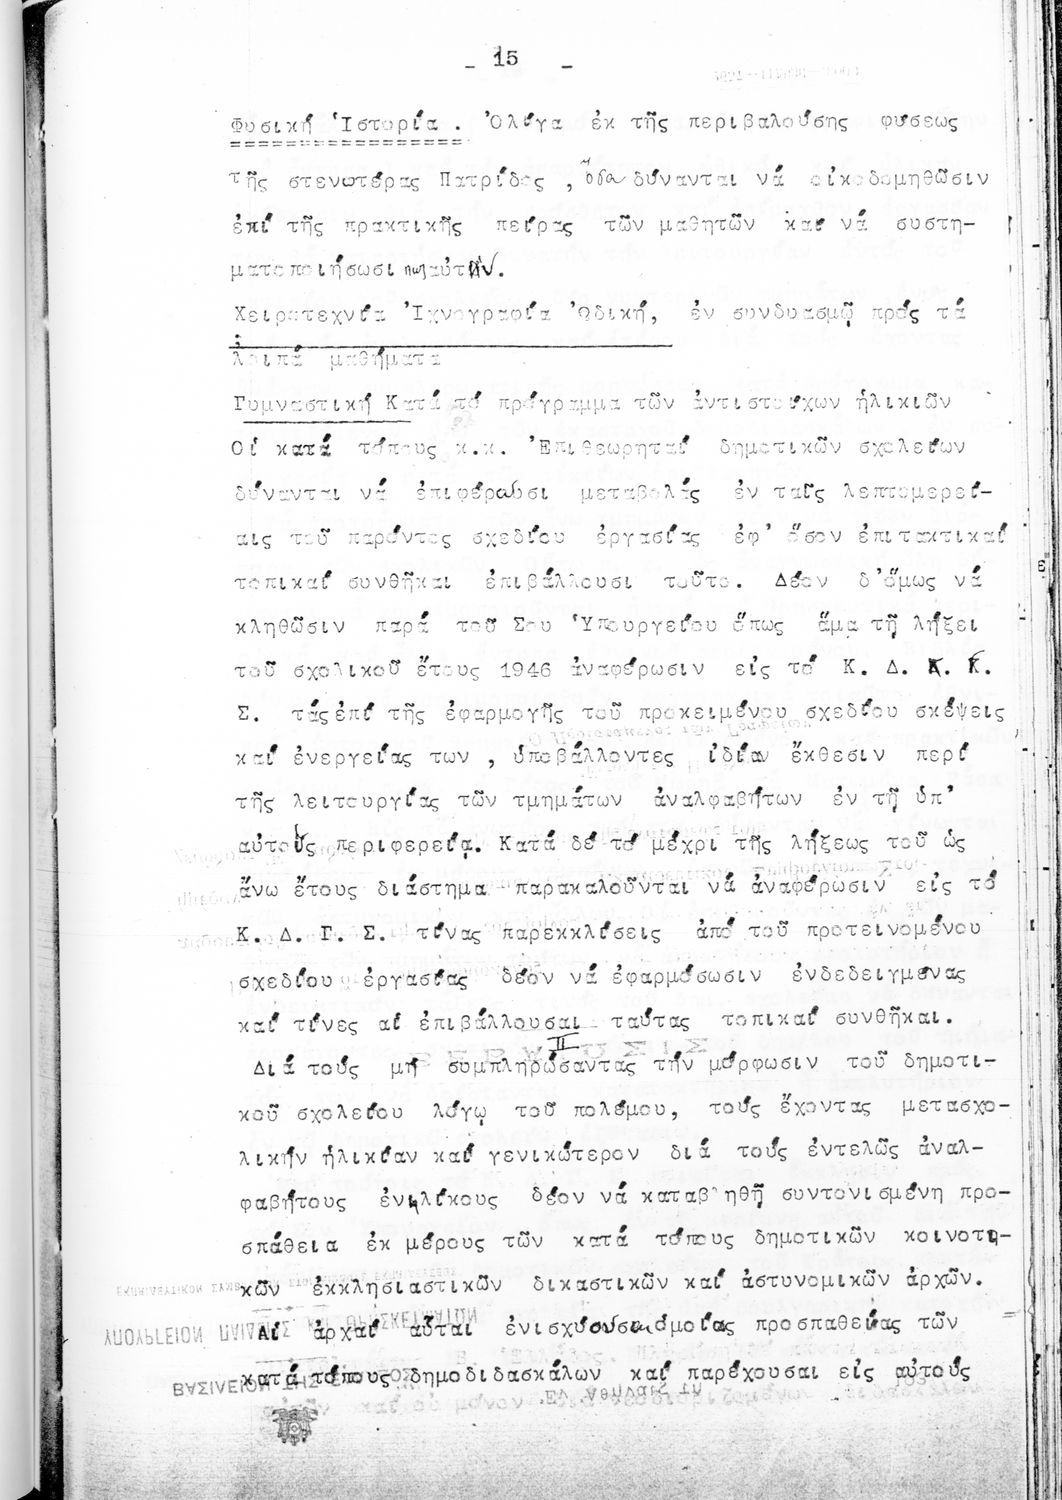 - 15 -
Φυσική Ἱστορία . Ὀλίγα ἐκ τῆς περιβαλούσης φύσεως
τῆς στενωτέρας Πατρίδος , ὅσα δύνανται νά οἰκοδομηθῶσιν
ἐπί τῆς πρακτικῆς πείρας τῶν μαθητῶν καί νά συστη-
ματοποιήσωσι πως αὐτήν.
Χειροτεχνία Ἰχνογραφία Ὠδική, ἐν συνδυασμῷ πρός τά
λοιπά μαθήματα
Γυμναστική Κατά τό πρόγραμμα τῶν ἀντιστοίχων ἡλικιῶν
Οἱ κατά τόπους κ.κ. Ἐπιθεωρηταί δημοτικῶν σχολείων
δύνανται νά ἐπιφέρωσι μεταβολάς ἐν ταῖς λεπτομερεί-
αις τοῦ παρόντος σχεδίου ἐργασίας ἐφ' ὅσον ἐπιτακτικαί
τοπικαί συνθῆκαι ἐπιβάλλουσι τοῦτο. Δέον δ'ὅμως νά
κληθῶσιν παρά τοῦ Σου Ὑπουργείου ὅπως ἅμα τῇ λήξει
τοῦ σχολικοῦ ἔτους 1946 ἀναφέρωσιν εἰς τό Κ. Δ. Γ.
Σ. τάς ἐπί τῆς ἐφαρμογῆς τοῦ προκειμένου σχεδίου σκέψεις
καί ἐνεργείας των , ὑποβάλλοντες ἰδίαν ἔκθεσιν περί
τῆς λειτουργίας τῶν τμημάτων ἀναλφαβήτων ἐν τῇ ὑπ'
αὐτούς περιφερείᾳ. Κατά δέ τό μέχρι τῆς λήξεως τοῦ ὡς
ἄνω ἔτους διάστημα παρακαλοῦνται νά ἀναφέρωσιν εἰς τό
Κ. Δ. Γ. Σ. τίνας παρεκκλίσεις ἀπό τοῦ προτεινομένου
σχεδίου ἐργασίας δέον νά ἐφαρμόσωσιν ἐνδεδειγμένας
καί τίνες αἱ ἐπιβάλλουσαι ταύτας τοπικαί συνθῆκαι.
II
Διά τούς μή συμπληρώσαντας τήν μόρφωσιν τοῦ δημοτι-
κοῦ σχολείου λόγῳ τοῦ πολέμου, τούς ἔχοντας μετασχο-
λικήν ἡλικίαν καί γενικώτερον διά τούς ἐντελῶς ἀναλ-
φαβήτους ἐνηλίκους δέον νά καταβληθῇ συντονισμένη προ-
σπάθεια ἐκ μέρους τῶν κατά τόπους δημοτικῶν κοινοτι-
κῶν ἐκκλησιαστικῶν δικαστικῶν καί ἀστυνομικῶν ἀρχῶν.
Αἱ ἀρχαί αὗται ἐνισχύουσαι ὁμοίας προσπαθείας τῶν
κατά τόπους δημοδιδασκάλων καί παρέχουσαι εἰς αὐτούς